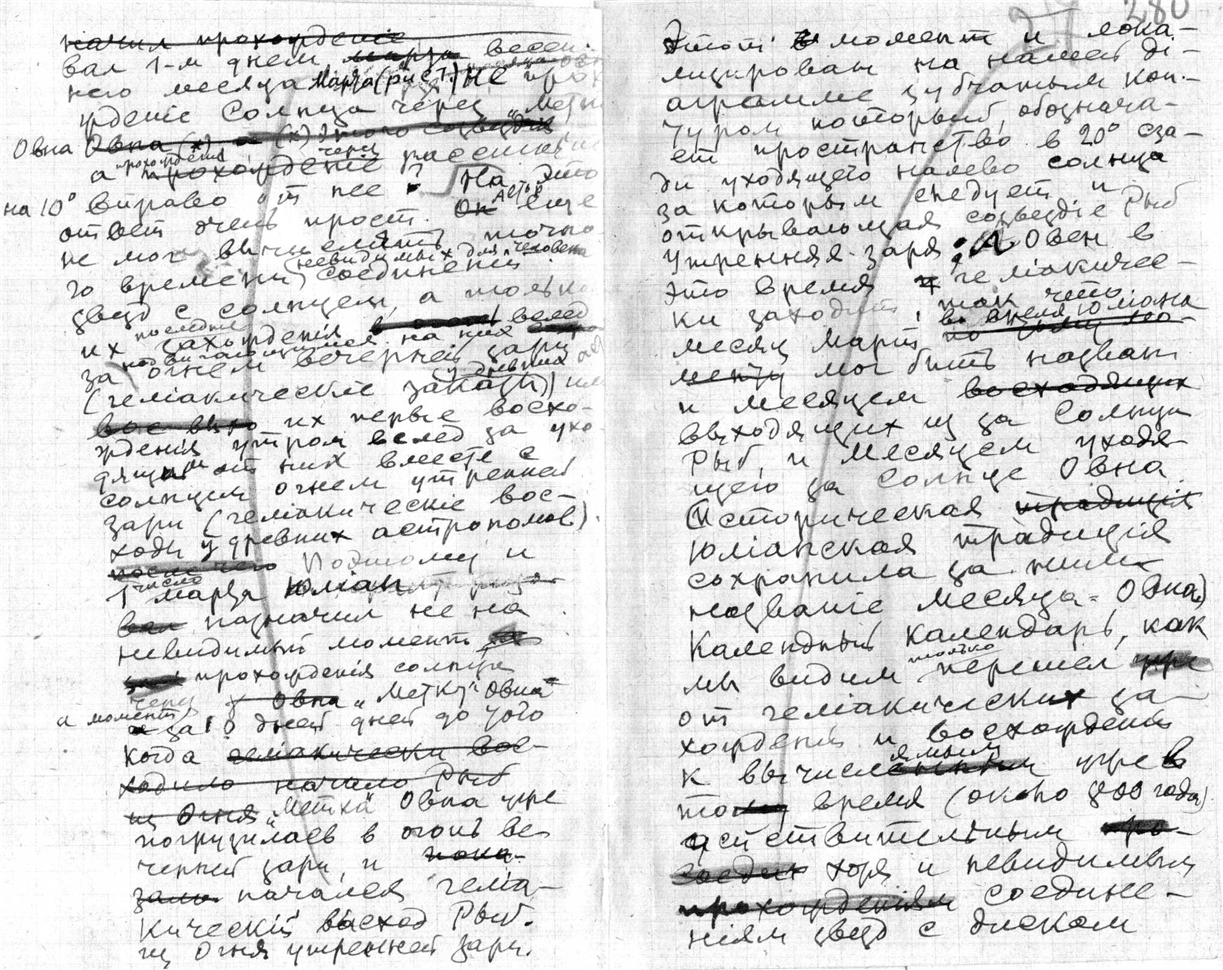 начил прохожденіе
вал 1-м днем марта весен-
него месяца Марта (рис 1.) не прох
жденіе Солнца через „Метку
Овна Овна (х) (х) этого созвездія
а прохожденія прохожденіе через разстояніе
на 10° вправо от нее? На это
ответ очень прост. Он Астр еще
не мог вычислять точно
го времени (невидимых для человека
соединеній
звезд с солнцем, а только
их последние захожденія на них вслед
за подвигающимся огнем вечерней зари
(геліакическіе закаты у древних
вос их первые восхо-
жденія утром вслед за ухо
дящим от них вместе с
солнцем огнем утренней
зари (геліакическіе вос-
ходы у древних астрономов).
после чего Поэтому и
1 число марта Юлиан
назначил не на
невидимый момент
прохожденія солнца
через Овна „Метку Овна“
а момент за 10 дней дней до того
когда геліакически вос-
ходило начало Рыб
из Огня „Метка“ Овна уже
погрузилась в огонь ве-
черней зари, и пока-
зало начался геліа-
кический восход Рыб.
из Огня утренней зари.
280
Этот момент и лока-
лизирован на нашей ді-
аграмме зубчатым кон-
туром который, обознача-
ет пространство в 20° сза-
ди уходящего налево солнца
за которым следует и
открывающая созвездіе Рыб
утренняя заря. А Овен в
это время геліакичес-
ки заходит, так что
месяц март во время Юлиана
по этому мо-
менту мог быть назван
и месяцем восходящих
выходящих из за Солнца
Рыб, и месяцем уходя-
щего за Солнце Овна
(Историческая традиція
Юліанская традиція
сохранила за ним
названіе месяца Овна)
Календный Календарь, как
мы видим только перешел уже
от геліакических за-
хожденій и восхожденій
к вычисляемым уже в
то время (около 800 года)
действительным про-
соедин хотя и невидимым
прохожденіям соедине-
ніям звезд с диском